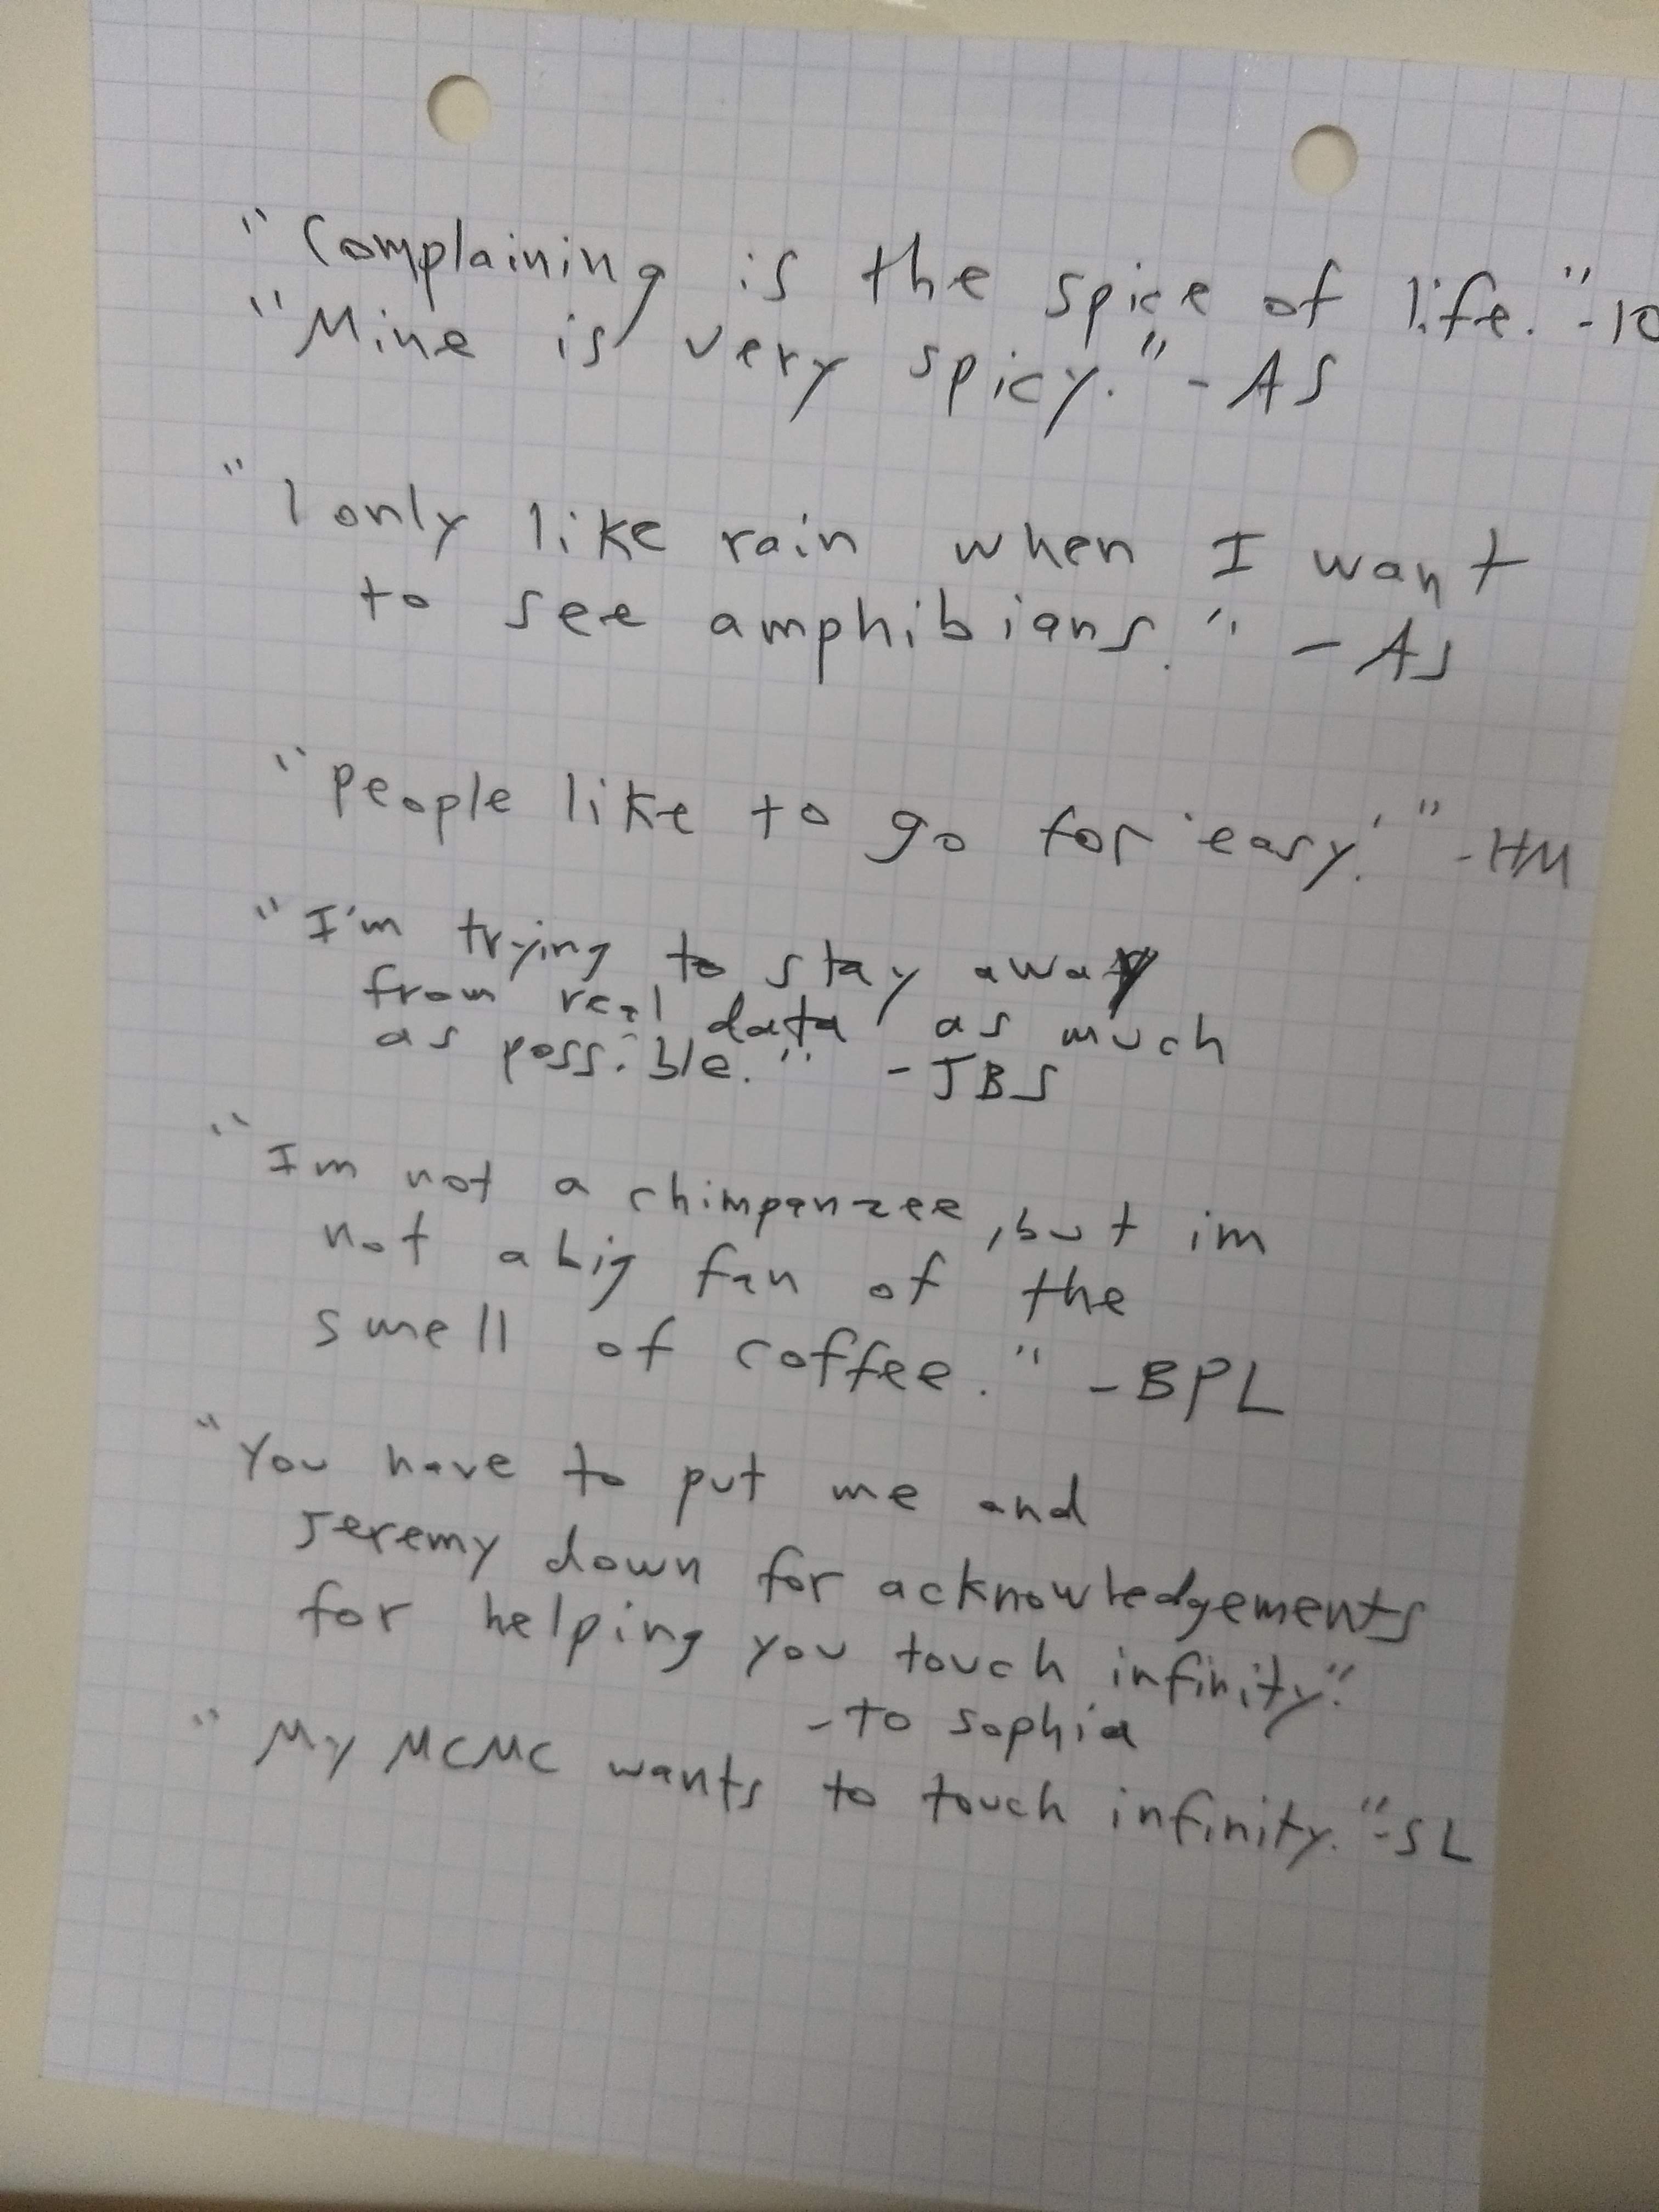 "Complaining is the spice of life."
"Mine is very spicy." - AS
"I only like rain when I want
to see amphibians." - AS
"People like to go for 'easy.'" - HM
"I'm trying to stay away
from real data as much
as possible." - JBS
"Im not a chimpanzee, but im
not a big fan of the
smell of coffee." - BPL
"You have to put me and
Jeremy down for acknowledgements
for helping you touch infinity."
- to Sophia
"My MCMC wants to touch infinity." - SL